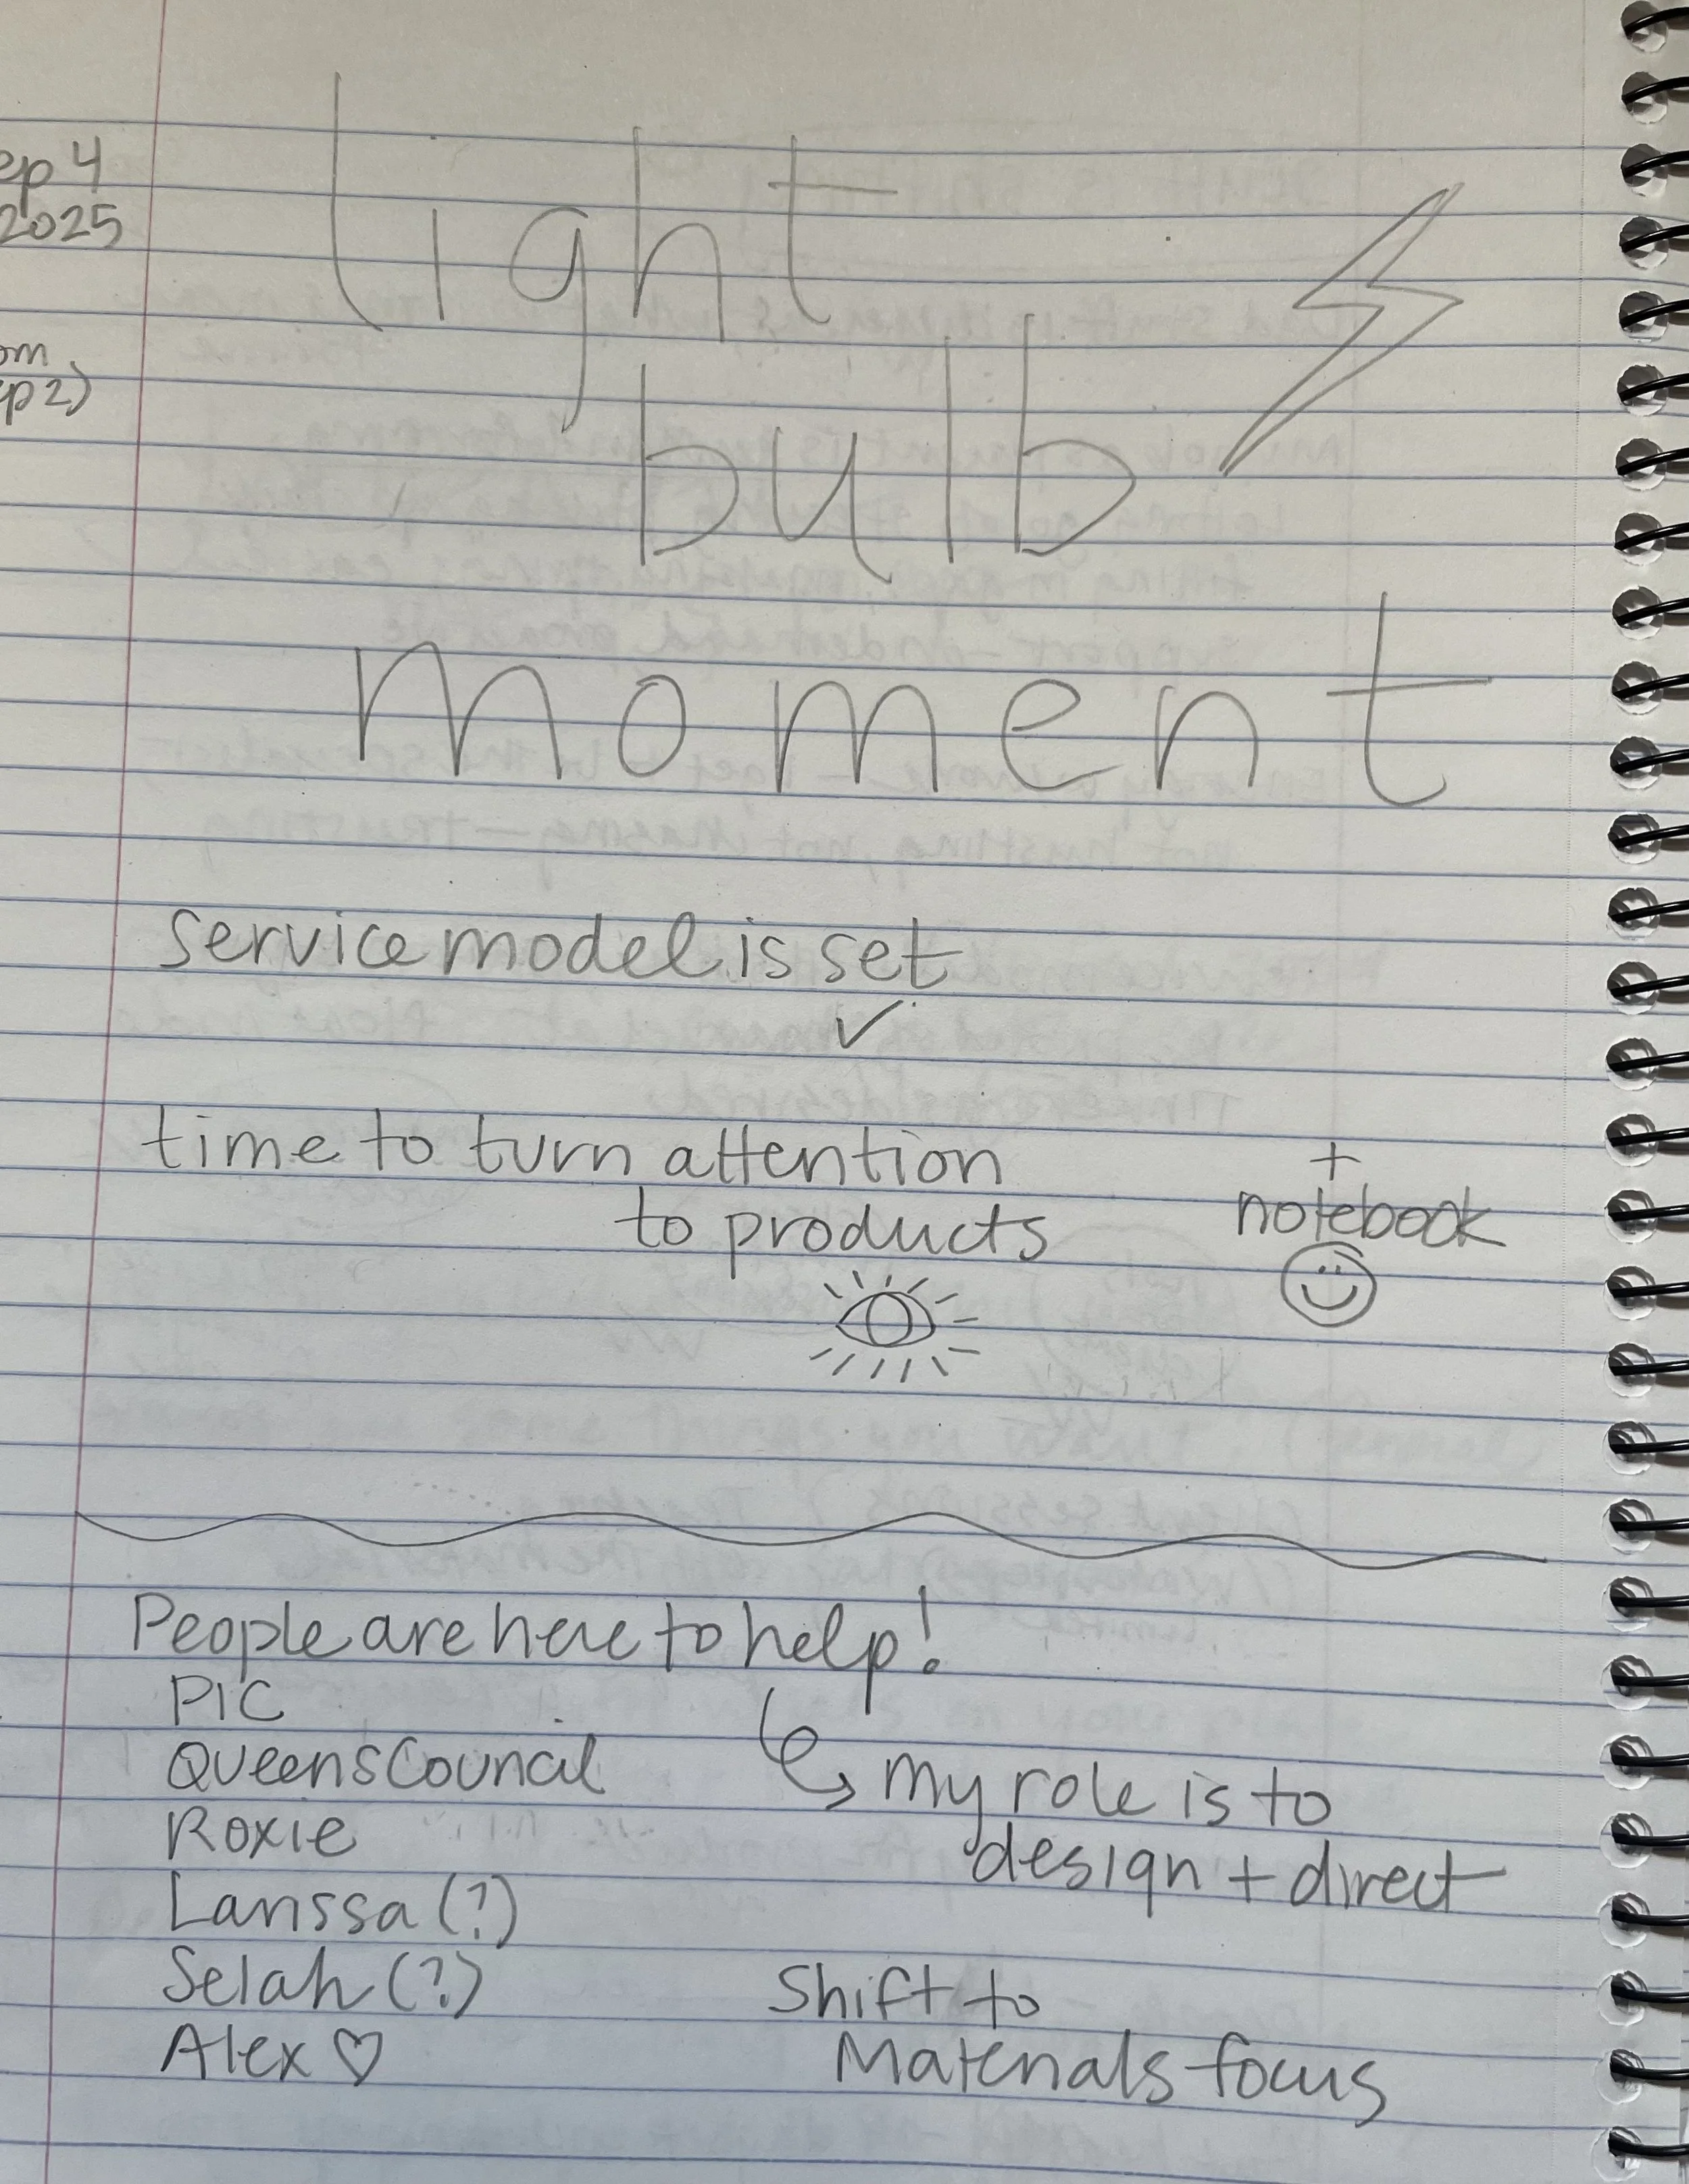 ep 4
2025
om
ep 2)
light
bulb
moment
service model is set
✓
time to turn attention
to products
+
notebook
People are here to help!
PIC
Queens Council
Roxie
my role is to
design + direct
Larissa (?)
Selah (?)
Alex ♡
Shift to
Materials focus